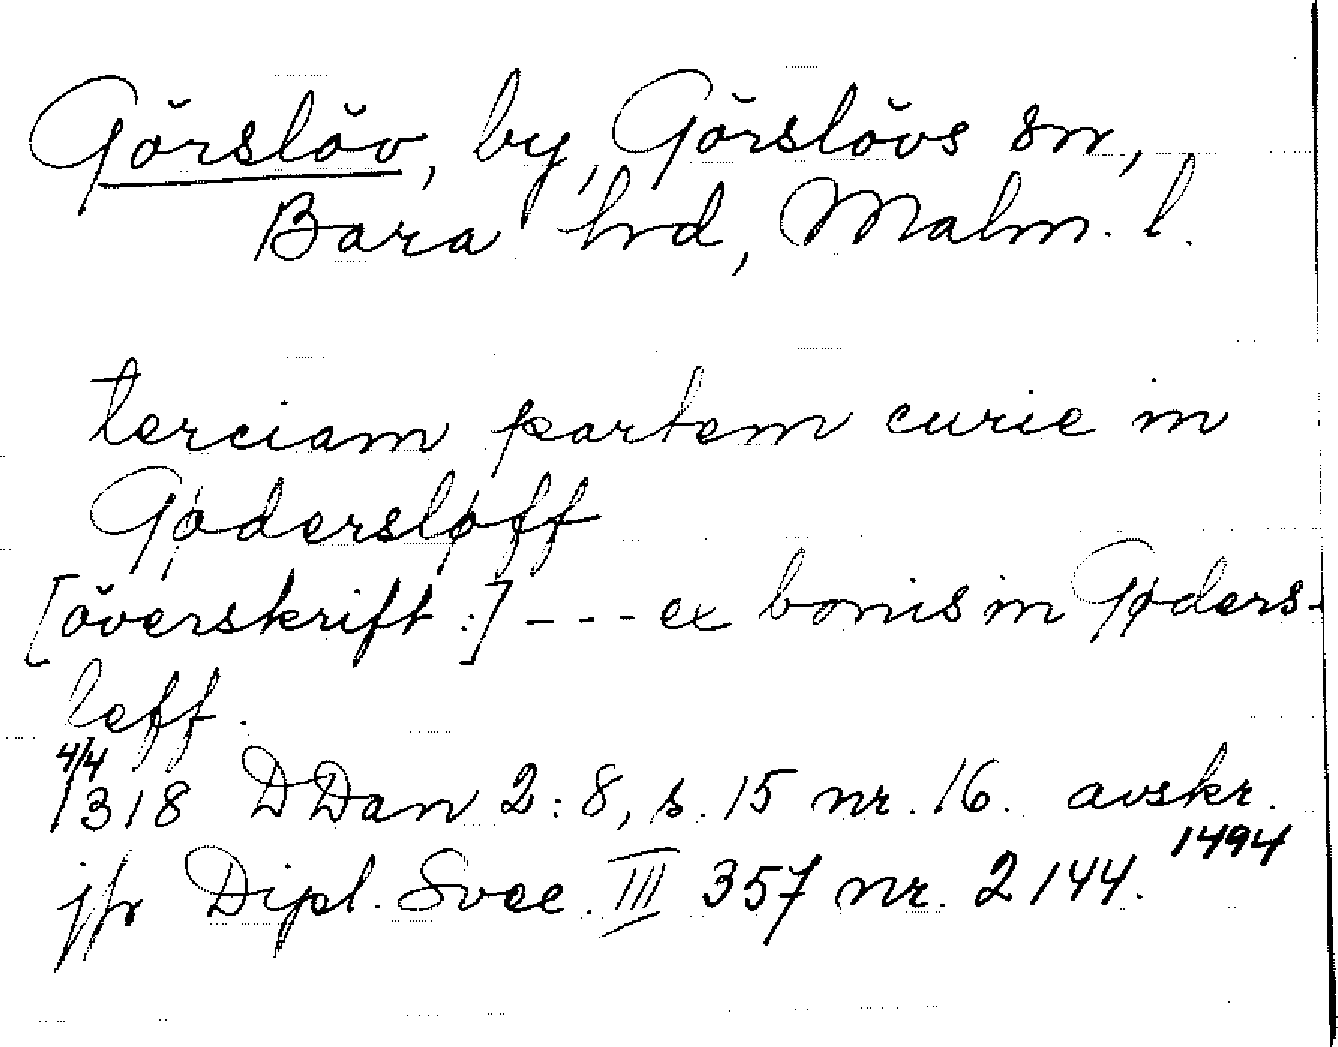 Görslöv, by, Görslövs sn,
Bara hrd, Malm. l.
terciam partem curie in
Gødersløff
[överskrift:] --- ex bonis in Gøders-
leff.
4/4
1318 DDan 2:8, s. 15 nr. 16. avskr.
1494
jfr Dipl. Svec. III 357 nr. 2144.